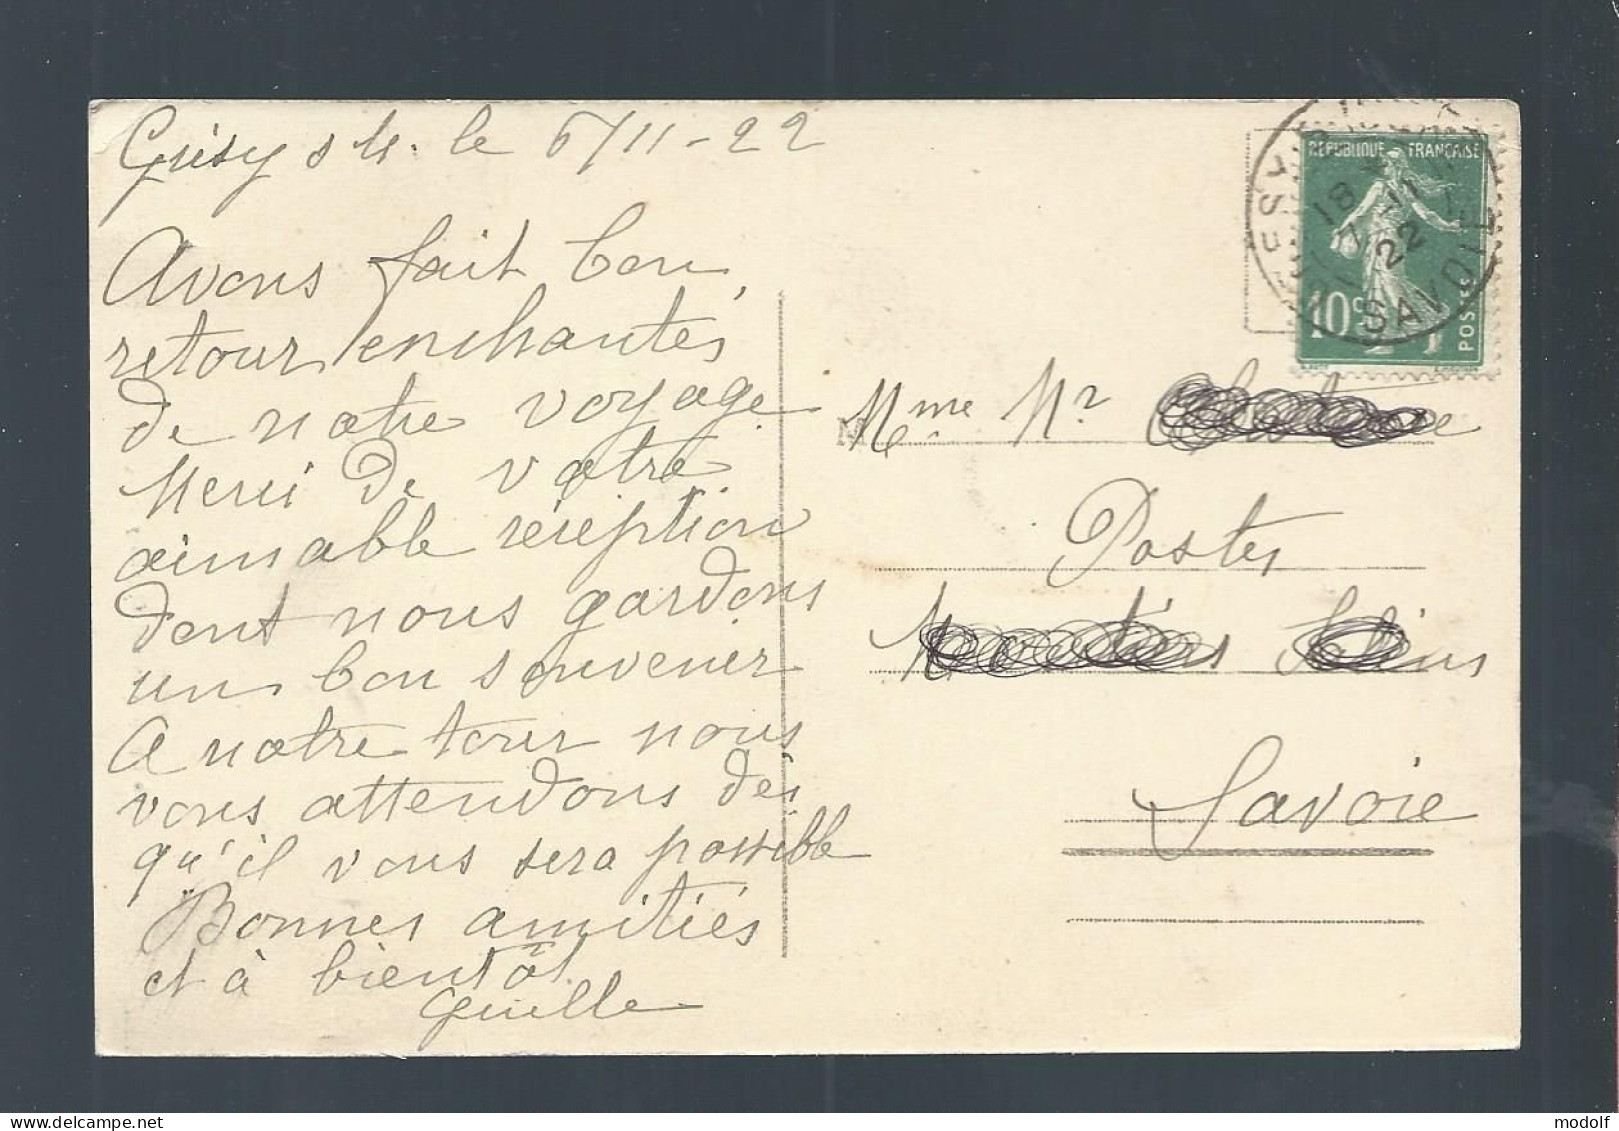 Grésy s/ le 6/11-22
Avons fait bon
retour enchantés
de notre voyage
Merci de votre
aimable réception
dont nous gardons
un bon souvenir
A notre tour nous
vous attendons dès
qu'il vous sera possible
Bonnes amitiés
et à bientôt
Guille
REPUBLIQUE FRANÇAISE
18
7 11
22
SAVOIE
10c
POSTES
M
Mme Mr
Postes
Moutiers Salins
Savoie
modolf